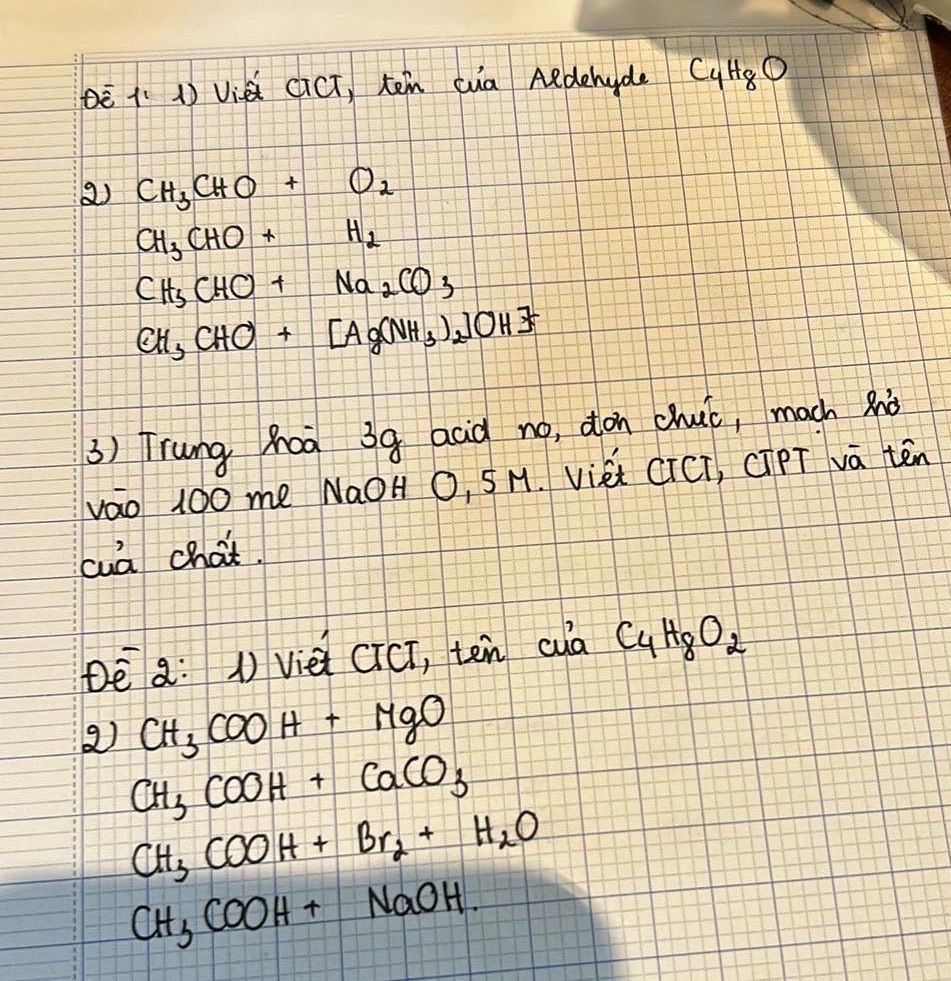 Đề 1: 1) Viết CTCT, tên của Aldehyde C₄H₈O
2) CH₃CHO + O₂
CH₃CHO + H₂
CH₃CHO + Na₂CO₃
CH₃CHO + [Ag(NH₃)₂]OH
3) Trung hoà 3g acid no, đơn chức, mạch hở
vào 100 ml NaOH 0,5M. Viết CTCT, CTPT và tên
của chất.
Đề 2: 1) Viết CTCT, tên của C₄H₈O₂
2) CH₃COOH + MgO
CH₃COOH + CaCO₃
CH₃COOH + Br₂ + H₂O
CH₃COOH + NaOH.